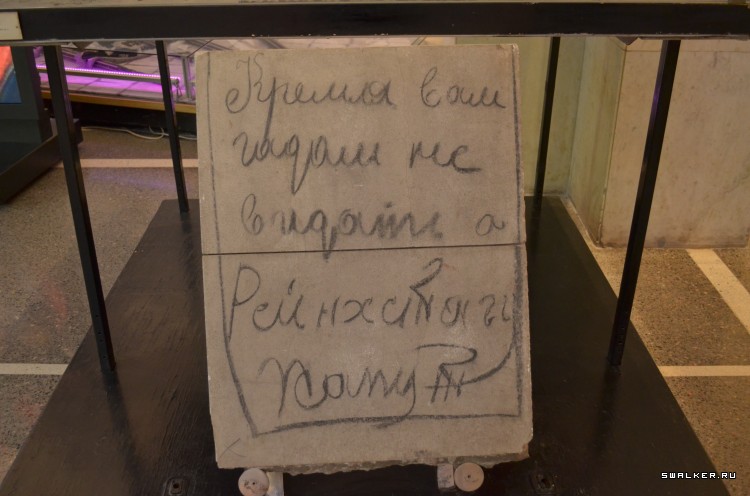 Кремля вам
гадам не
видать а
Рейнхстагу
капут
SWALKER.RU